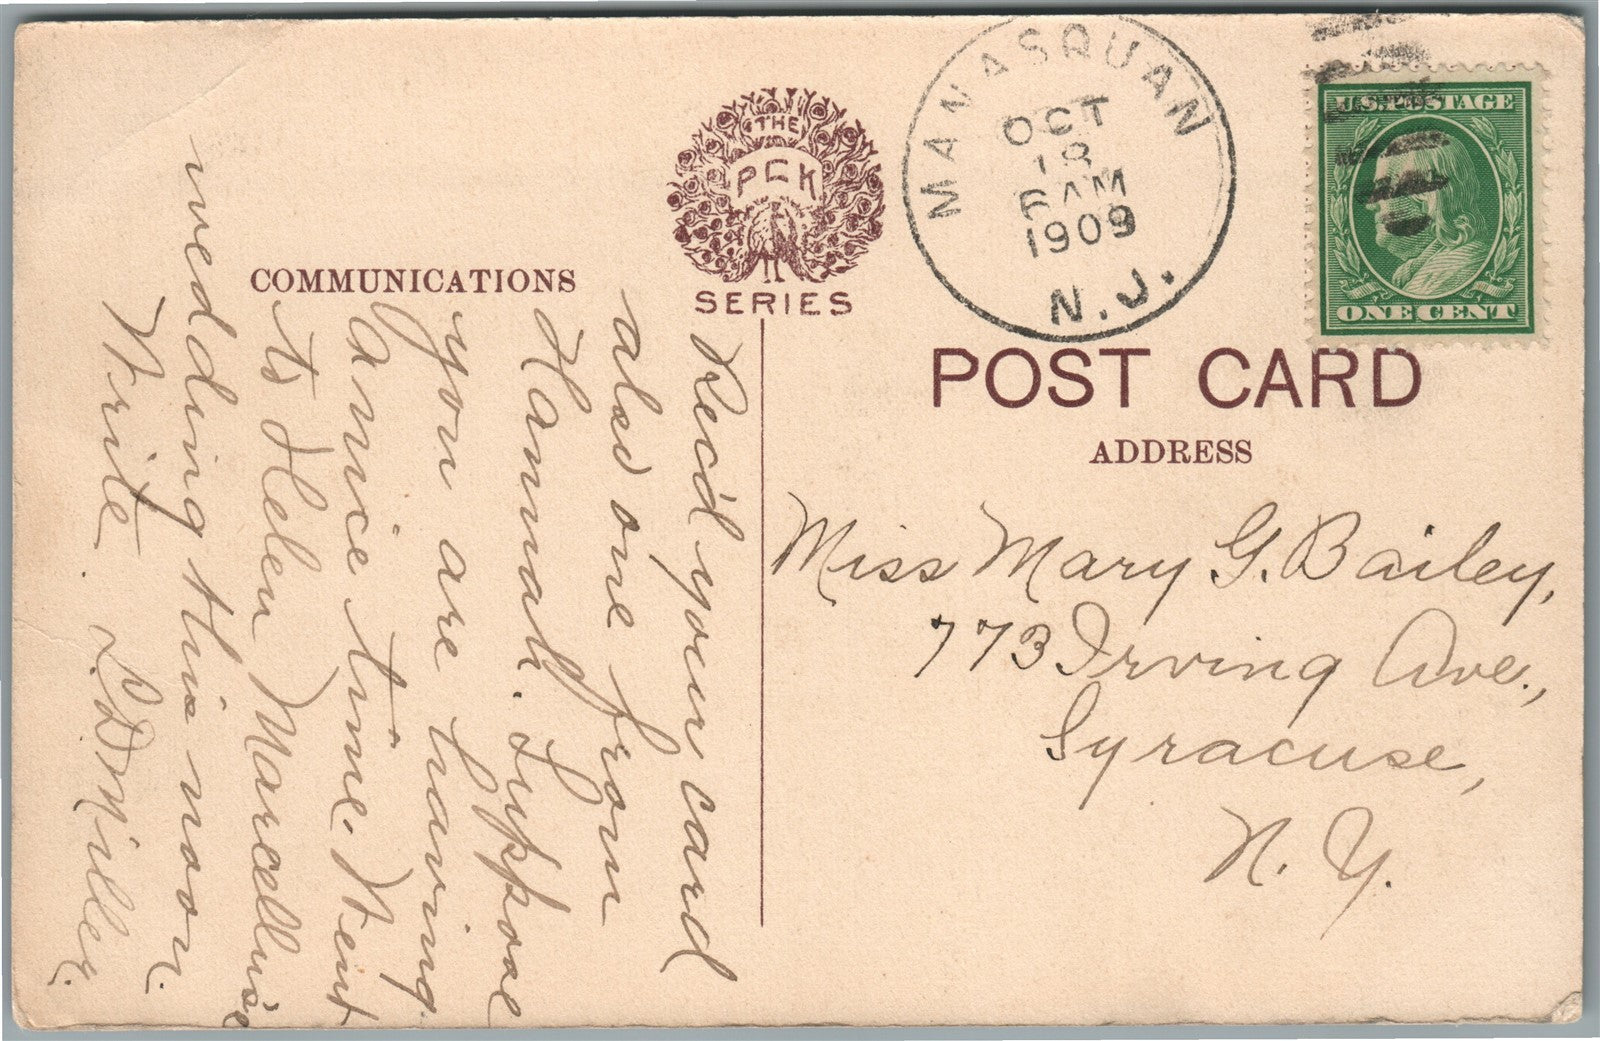 MANASQUAN
OCT
18
6 AM
1909
N.J.
U.S. POSTAGE
ONE CENT
THE
PCK
SERIES
COMMUNICATIONS
POST CARD
ADDRESS
Miss Mary G. Bailey,
773 Irving Ave.,
Syracuse,
N. Y.
Rec'd your card
also one from
Hannah. Suppose
you are having
a nice time. Went
to Helen Marcellus'
wedding this noon.
Write. L. D. Miller.